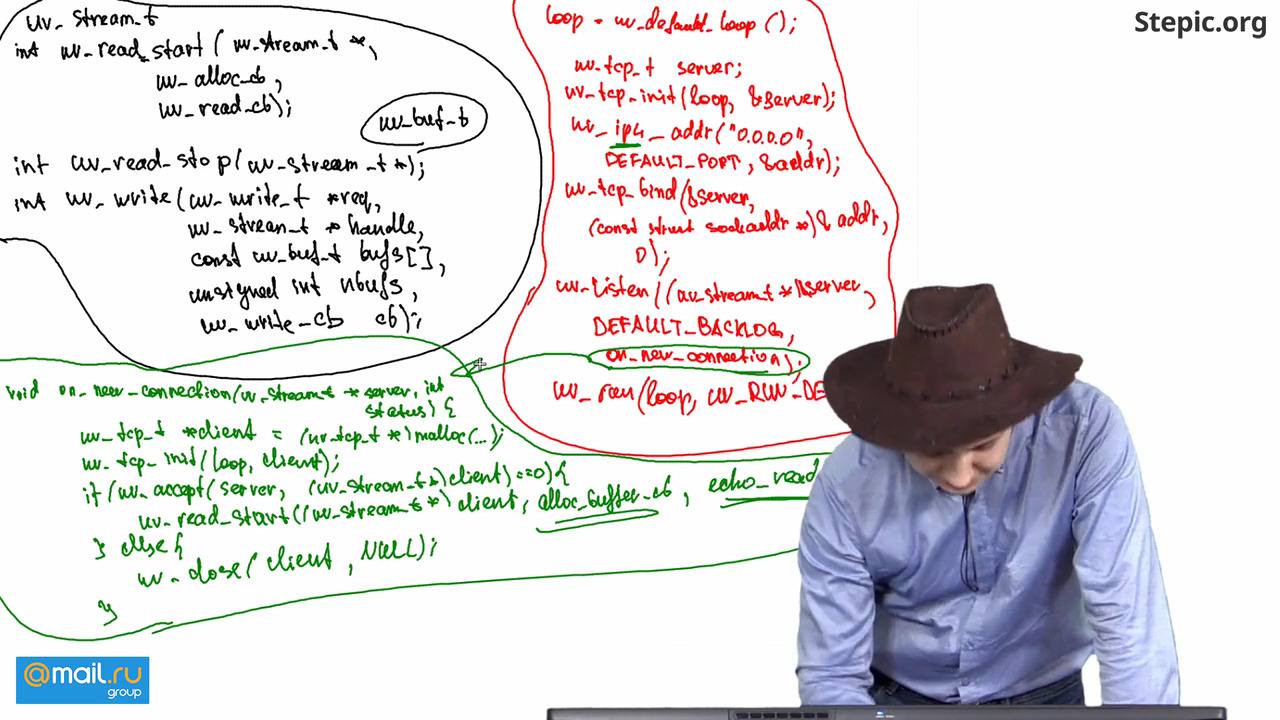 uv_stream_t
int uv_read_start ( uv_stream_t *,
uv_alloc_cb,
uv_read_cb);
uv_buf_t
int uv_read_stop(uv_stream_t *);
int uv_write(uv_write_t *req,
uv_stream_t *handle,
const uv_buf_t bufs[],
unsigned int nbufs,
uv_write_cb cb);
loop = uv_default_loop ();
uv_tcp_t server;
uv_tcp_init(loop, &server);
uv_ip4_addr("0.0.0.0",
DEFAULT_PORT, &addr);
uv_tcp_bind(&server,
(const struct sockaddr *)& addr,
0);
uv_listen((uv_stream_t *)&server,
DEFAULT_BACKLOG,
on_new_connection);
uv_run(loop, UV_RUN_DE
void on_new_connection(uv_stream_t *server, int
status) {
uv_tcp_t *client = (uv_tcp_t *)malloc(...);
uv_tcp_init(loop, client);
if (uv_accept(server, (uv_stream_t*)client)==0){
uv_read_start((uv_stream_t *) client, alloc_buffer_cb, echo_read
} else {
uv_close(client, NULL);
}
Stepic.org
@mail.ru
group